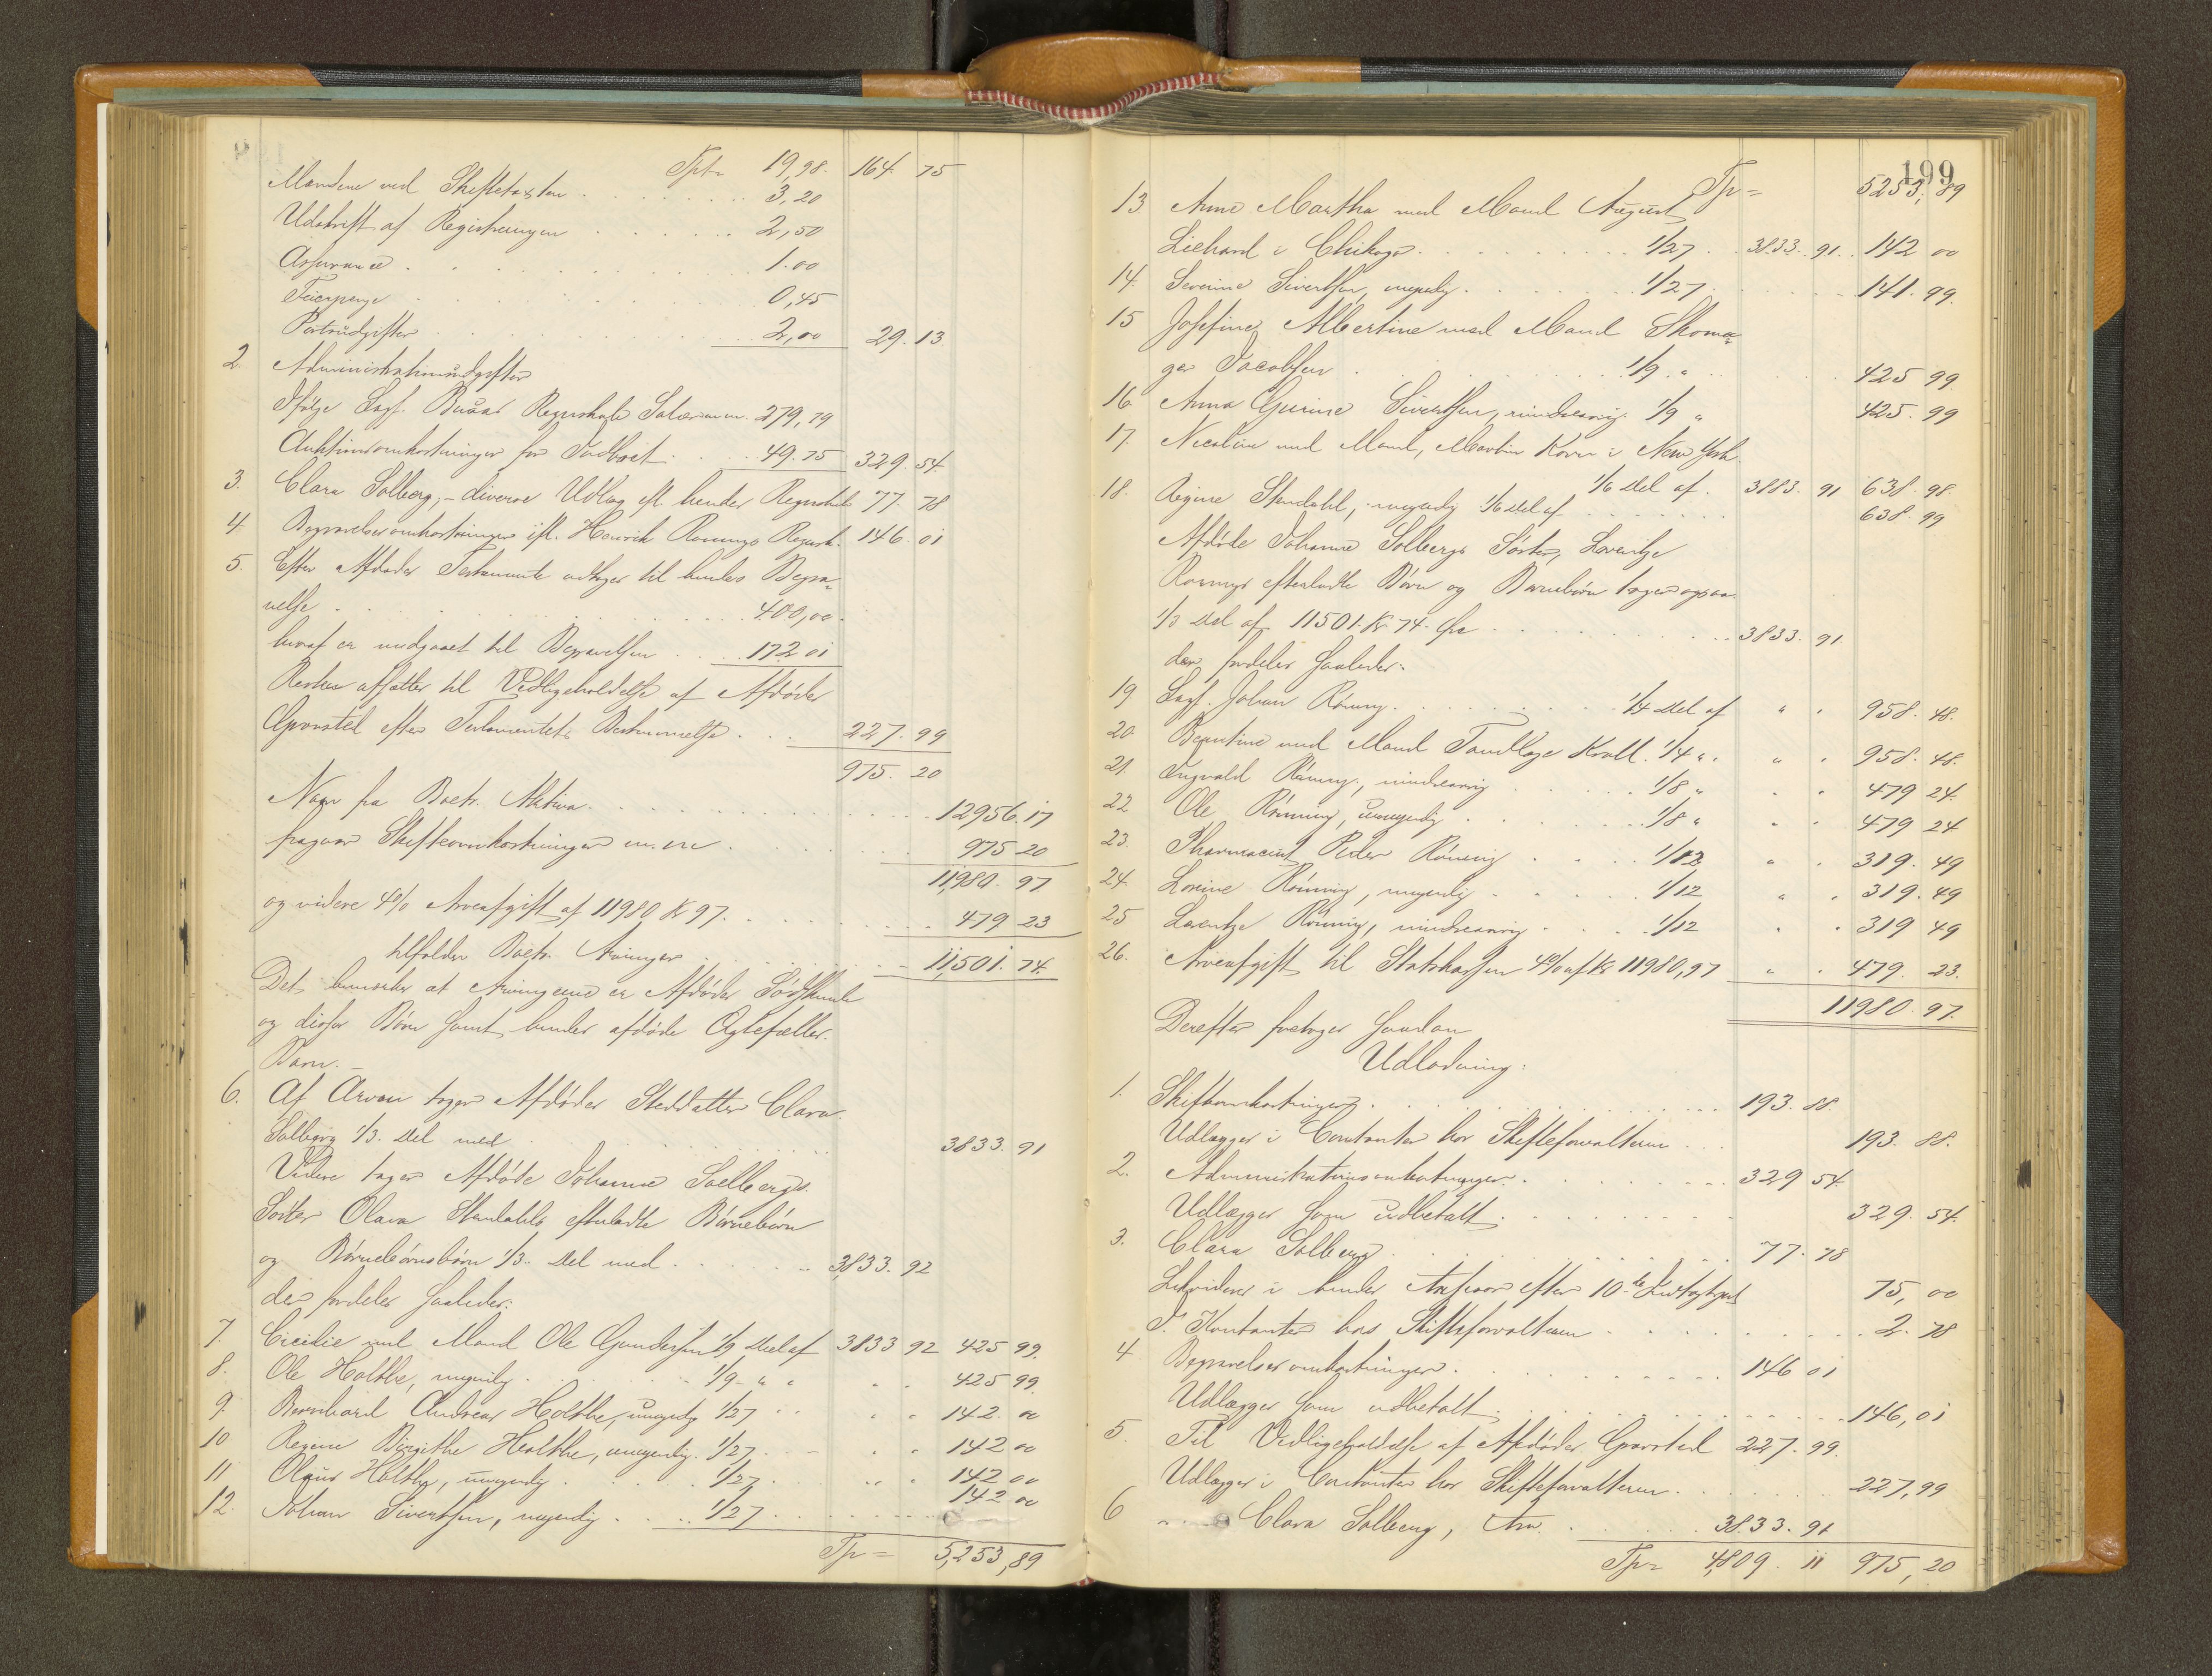 Tpt= 19,98. 164. 75
Mændene ved Skiftetaxten . 3,20
Udskrift af Registreringen . . . 2,50
Assurance . . . 1.00
Feierpenge . . . 0,45
Portoudgifter . . . 2,00 29. 13.
2. Administrationsudgifter
Ifølge Sagf. Buaas Regnskab Salær m.m. 279,79
Auktionsomkostninger for Indboet . . . 49.75 329. 54.
3. Clara Solberg, - diverse Udlæg efl. hendes Regnskab 77. 78
4. Begravelsesomkostninger ifl. Henrik Rønnings Regnsk. 146. 01
5. Efter Afdødes Testamente udtages til hendes Begra-
velse . . . 400,00.
hvoraf er medgaaet til Begravelsen . . . 172 01
Resten afsættes til Vedligeholdelse af Afdødes
Gravsted efter Testamentets Bestemmelse . . . 227. 99
975. 20
Naar fra Boets Aktiva . . . 12956. 17
fragaar Skifteomkostninger m.m . . . 975 20
11980. 97
og videre 4% Arveafgift af 11980 Kr 97. . . . 479 23
tilfalder Boets Arvinger . . . 11,501. 74.
Det bemærkes at Arvingerne er Afdødes Sødskende
og disses Børn samt hendes afdøde Ægtefælles
Barn. -
6. Af Arven tager Afdødes Steddatter Clara
Solberg 1/3. Del med . . . 3833. 91
Videre tager Afdøde Johanne Soelbergs
Søster Olava Stendahls efterladte Børnebørn
og Børnebørnsbørn 1/3. Del med . . . 3,833. 92
der fordeles saaledes:
7. Cicilie med Mand Ole Gundersen 1/9 Deel af 3833 92 425 99.
8. Ole Holthe, myndig . . . 1/9 " " 425 99.
9. Bernhard Andreas Holthe, umyndig 1/27 . . . 142. 00
10 Regine Birgithe Holthe, umyndig. 1/27 . . . 142 00
11 Olaus Holthe, umyndig . . . 1/27 . . . 142 00
12. Johan Sivertsen, myndig . . . 1/27 . . . 142 00
Tpr = 5,253,89
199
Tpr = 5253,89
13. Anne Martha med Mand August
Liehard i Chikago . . . 1/27 . . 3833. 91. . 142 00
14. Severine Sivertsen, myndig . . . 1/27 . . . 141. 99.
15 Josefine Albertine med Mand Skoma-
ger Jacobsen . . . 1/9 . " . . 425 99
16 Anna Gurine Sivertsen, mindreaarig. 1/9 " 425. 99
17. Nicoline med Mand, Martin Koren i New York.
1/6 Del af . 3883. 91 638. 98.
18. Regine Stendahl, myndig 1/6 Del af . . . 638. 99
Afdøde Johanne Solbergs Søster, Lorentze
Rønnings efterladte Børn og Børnebørn tager ogsaa
1/3 Del af 11501. Kr. 74. Øre . . . 3833. 91.
der fordeles saaledes:
19 Sagf. Johan Rønning . . . 1/4 Del af " . 958. 48.
20 Bergitine med Mand Tandlæge Kroll. 1/4 ". " . 958. 48.
21 Ingvald Rønning, mindreaarig . . . 1/8 " . " 479 24.
22 Ole Rønning, umyndig . . . 1/8 " . . 479 24
23. Pharmaceut Peder Rønning . . . 1/12 " . 319. 49
24. Lovine Rønning, myndig . . . 1/12 " . 319. 49
25 Lorentze Rønning, mindreaarig . . . 1/12 . . 319 49
26. Arveafgift til Statskassen 4% af Kr 11980,97 " . 479. 23.
11980. 97.
Derefter foretages saadan
Udlodning:
1. Skifteomkostninger . . . 193. 88.
Udlægges i Contanter hos Skifteforvalteren . . . 193. 88.
2. Administrationsomkostninger . . . 329 54.
Udlægges som udbetalt . . . 329. 54.
3. Clara Solberg . . . 77. 78
Likvideres i hendes Ansvar efter 10de Indtægtspost 75, 00
I Kontanter hos Skifteforvalteren . . . 2. 78
4 Begravelsesomkostninger . . . 146 01
Udlægges som udbetalt . . . 146,01
5. Til Vedligeholdelse af Afdødes Gravsted 227. 99.
Udlægges i Contanter hos Skifteforvalteren . . . 227,99
6 Clara Solberg, Arv . . . 3833. 91
Tpr= 4,809. 11 975, 20